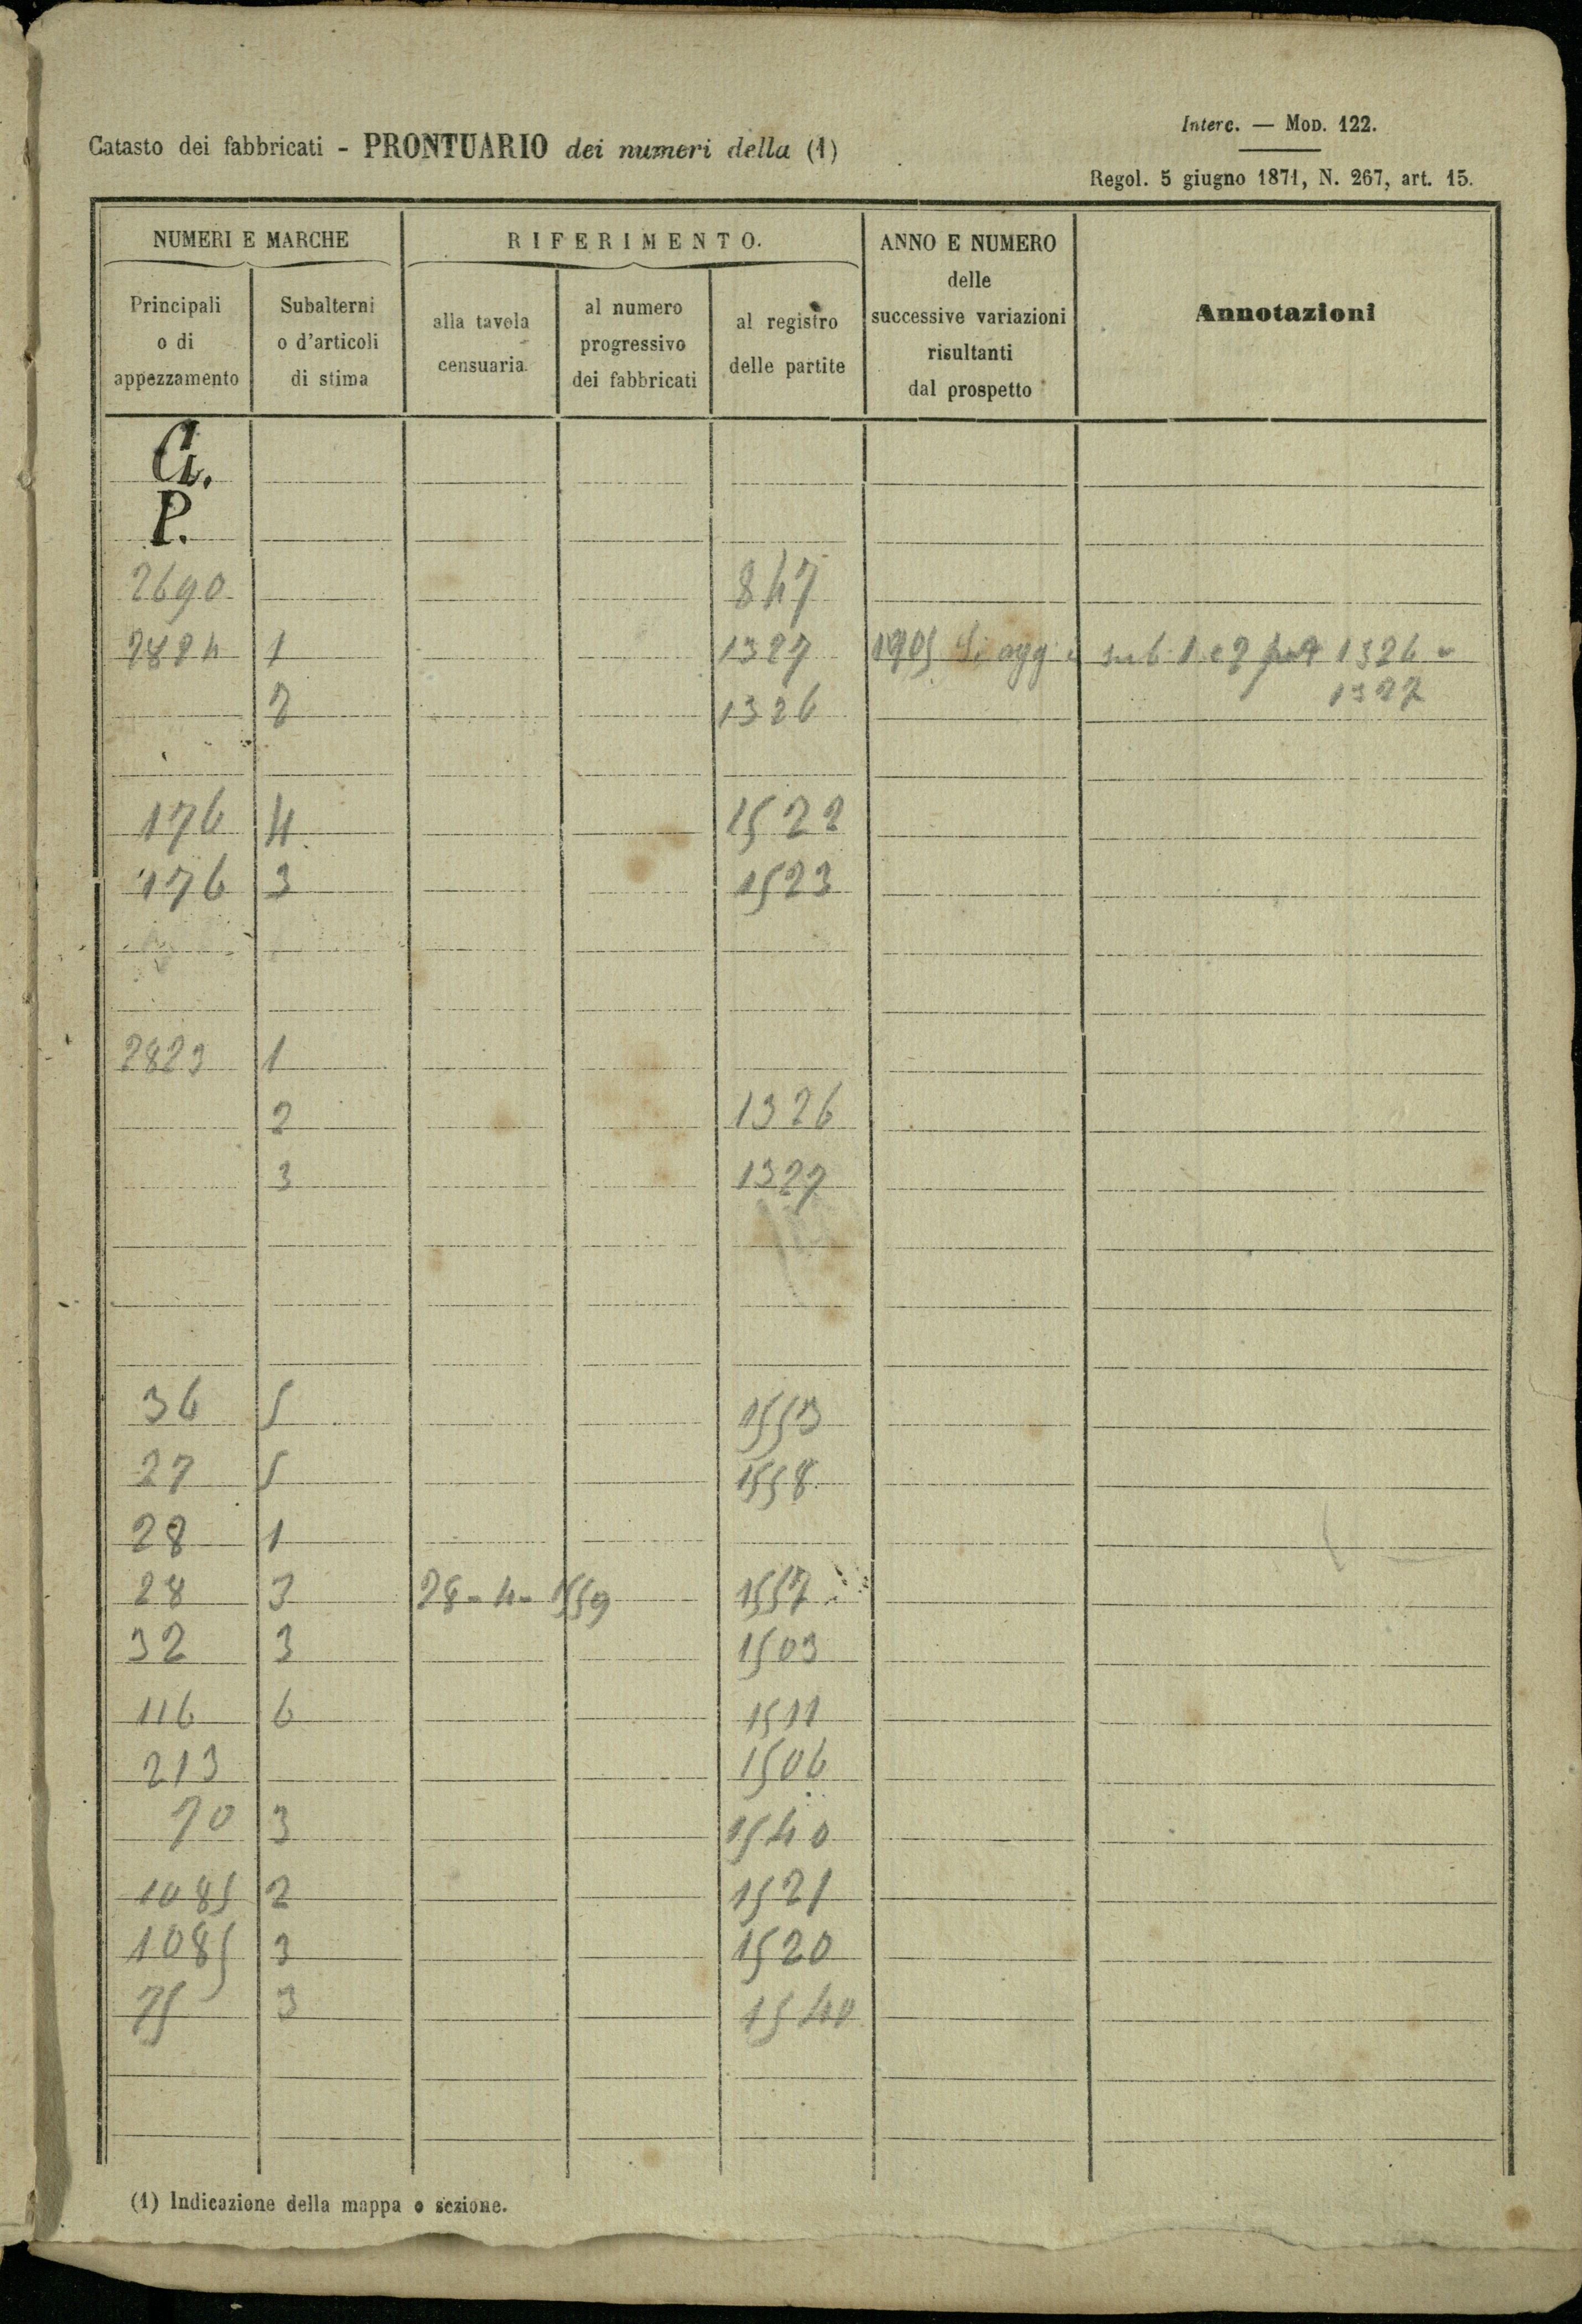 Interc. — Mod. 122.
Catasto dei fabbricati - PRONTUARIO dei numeri della (1)
Regol. 5 giugno 1871, N. 267, art. 15.
NUMERI E MARCHE
Principali
o di
appezzamento
Subalterni
o d'articoli
di stima
RIFERIMENTO.
alla tavola
censuaria.
al numero
progressivo
dei fabbricati
al registro
delle partite
ANNO E NUMERO
delle
successive variazioni
risultanti
dal prospetto
Annotazioni
P.
2690 847
2824 1 1327 1905 Si agg sub. 1 e 2 1326
1327
2 1326
176 4 1522
176 3 1523
2823 1
2 1326
3 1327
36 5 1553
27 5 1558
28 1
28 3 28-4-1559 1557
32 3 1503
116 6 1511
213 1506
70 3 1540
1085 2 1521
1085 3 1520
75 3 1540
(1) Indicazione della mappa o sezione.